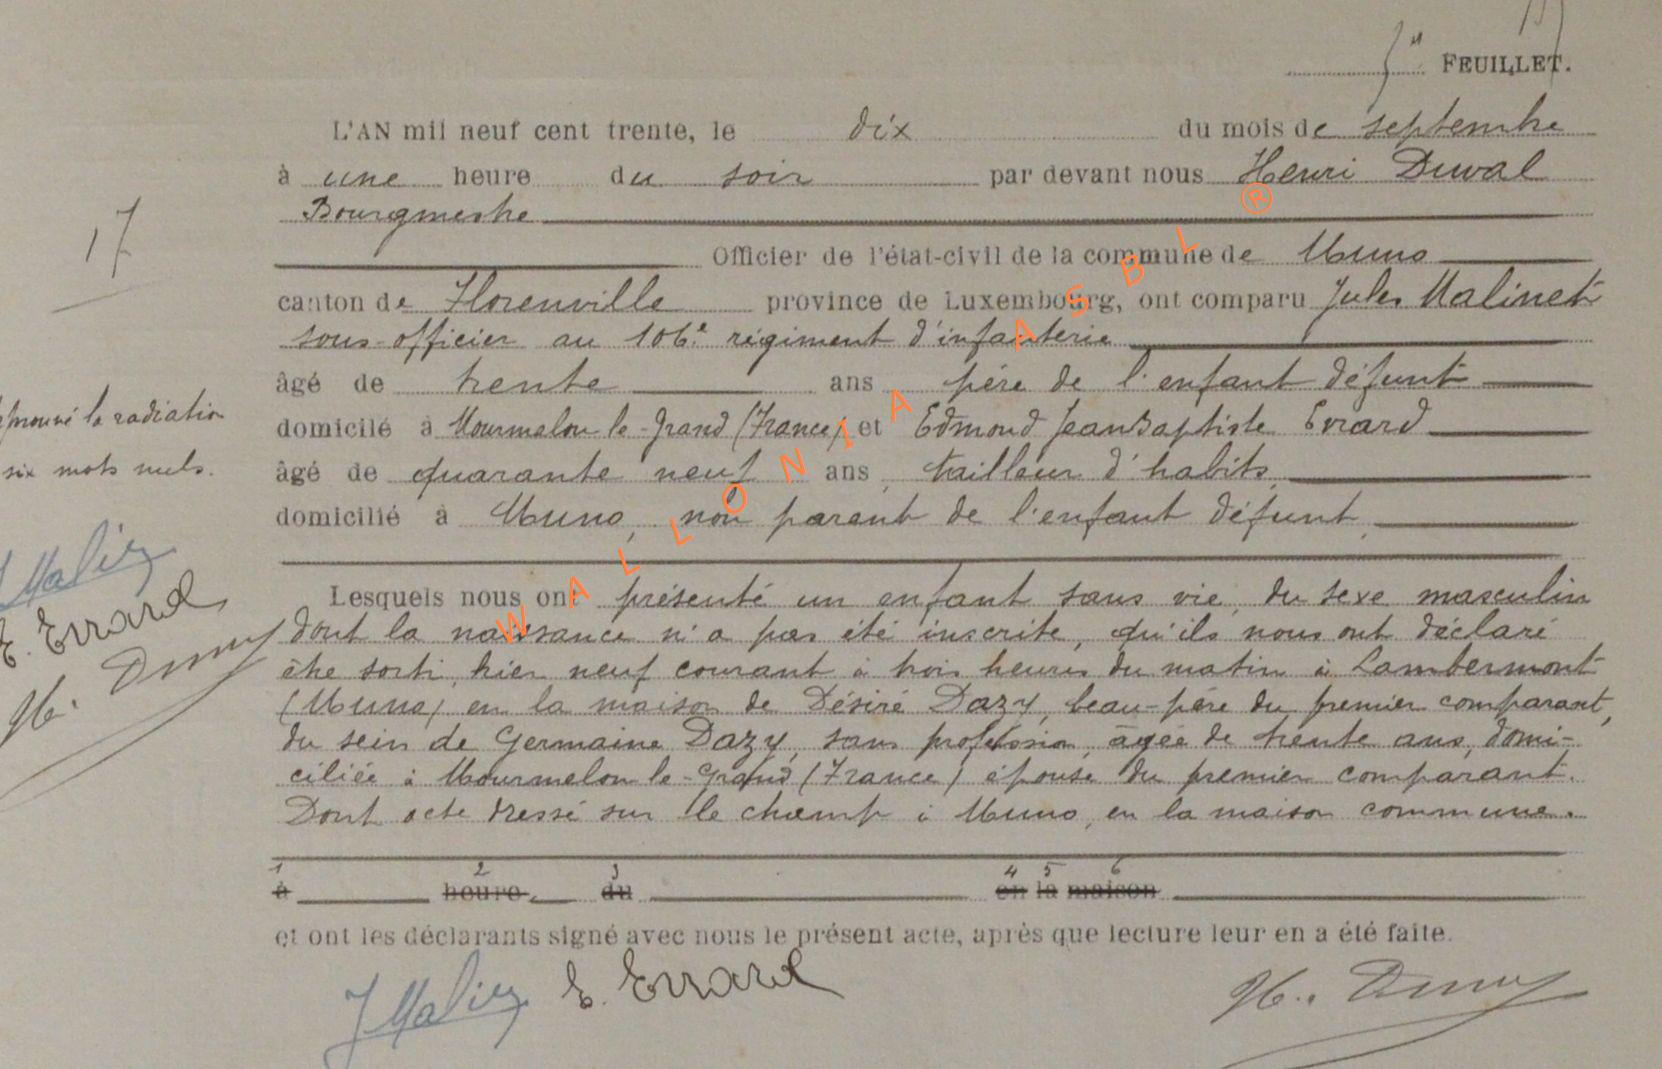 5e FEUILLET.
L'AN mil neuf cent trente, le dix du mois de septembre
à une heure du soir par devant nous Henri Duval
Bourgmestre
17
Officier de l'état-civil de la commune de Muno
canton de Florenville province de Luxembourg, ont comparu Jules Malinet
sous-officier au 106e régiment d'infanterie
âgé de trente ans père de l'enfant défunt
domicilé à Mourmelon le-Grand (France) et Edmond Jean Baptiste Evrard
âgé de quarante neuf ans, tailleur d'habits,
domicilié à Muno, non parent de l'enfant défunt,
approuvé la radiation
six mots nuls.
E. Evrard
H. Duval
Lesquels nous ont présenté un enfant sans vie, du sexe masculin
dont la naissance n'a pas été inscrite, qu'ils nous ont déclaré
être sorti, hier neuf courant à trois heures du matin à Lambermont
(Muno) en la maison de Désiré Dazy, beau-père du premier comparant,
du sein de Germaine Dazy, sans profession, âgée de trente ans, domi-
ciliée à Mourmelon le-Grand (France) épouse du premier comparant.
Dont acte dressé sur le champ à Muno, en la maison commune.
1 2 3 4 5 6
à heure du en la maison
et ont les déclarants signé avec nous le présent acte, après que lecture leur en a été faite.
E. Evrard
H. Duval
WALLONIA ASBL ®